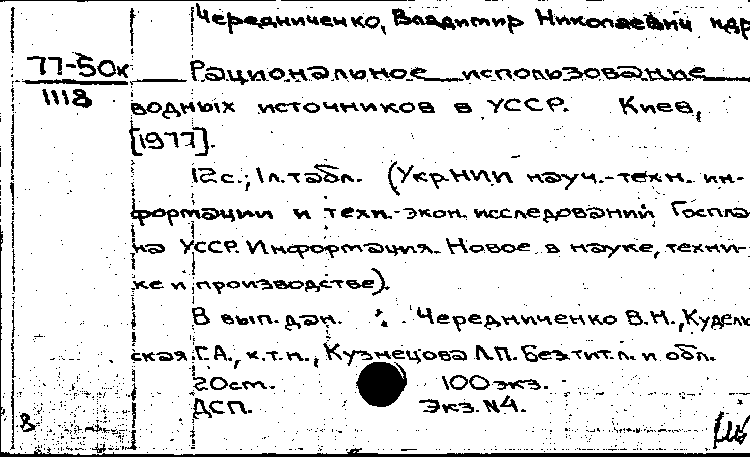 Чередниченко, Владимир Николаевич и др
77-50к
1118
Рациональное использование
водных источников в УССР. Киев,
[1977].
12с.; 1л.табл. (Укр.НИИ науч.-техн. ин-
формации и техн.-экон. исследований Госпла
на УССР. Информация. Новое в науке, техни-
ке и производстве).
В вып. дан. : Чередниченко В.Н., Кудель
ская Г.А., к.т.н., Кузнецова Л.П. Без тит. л. и обл.
20см. 100 экз.
ДСП. Экз. №4.
8